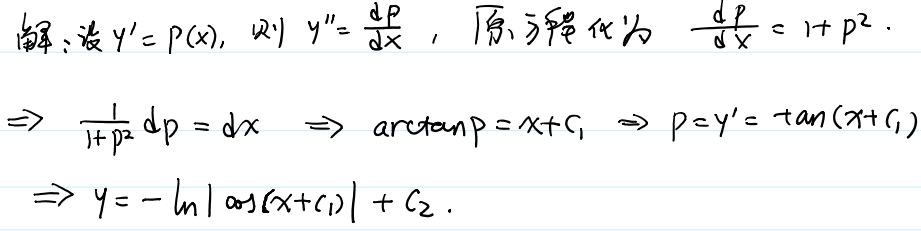 解:设 y' = p(x), 则 y'' = dp/dx , 原方程化为 dp/dx = 1+p² .
⇒ 1/(1+p²) dp = dx ⇒ arctan p = x+C₁ ⇒ p = y' = tan(x+C₁)
⇒ y = -ln|cos(x+C₁)| + C₂ .